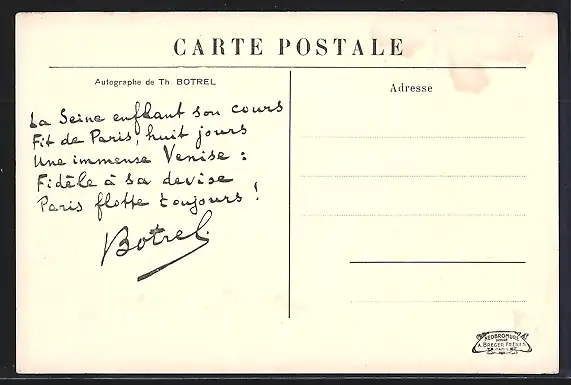 CARTE POSTALE
Autographe de Th. BOTREL
Adresse
La Seine enflant son cours
Fit de Paris, huit jours
Une immense Venise :
Fidèle à sa devise
Paris flotte toujours !
Botrel
NEOBROMURE
A. BREGER FRÈRES
PARIS